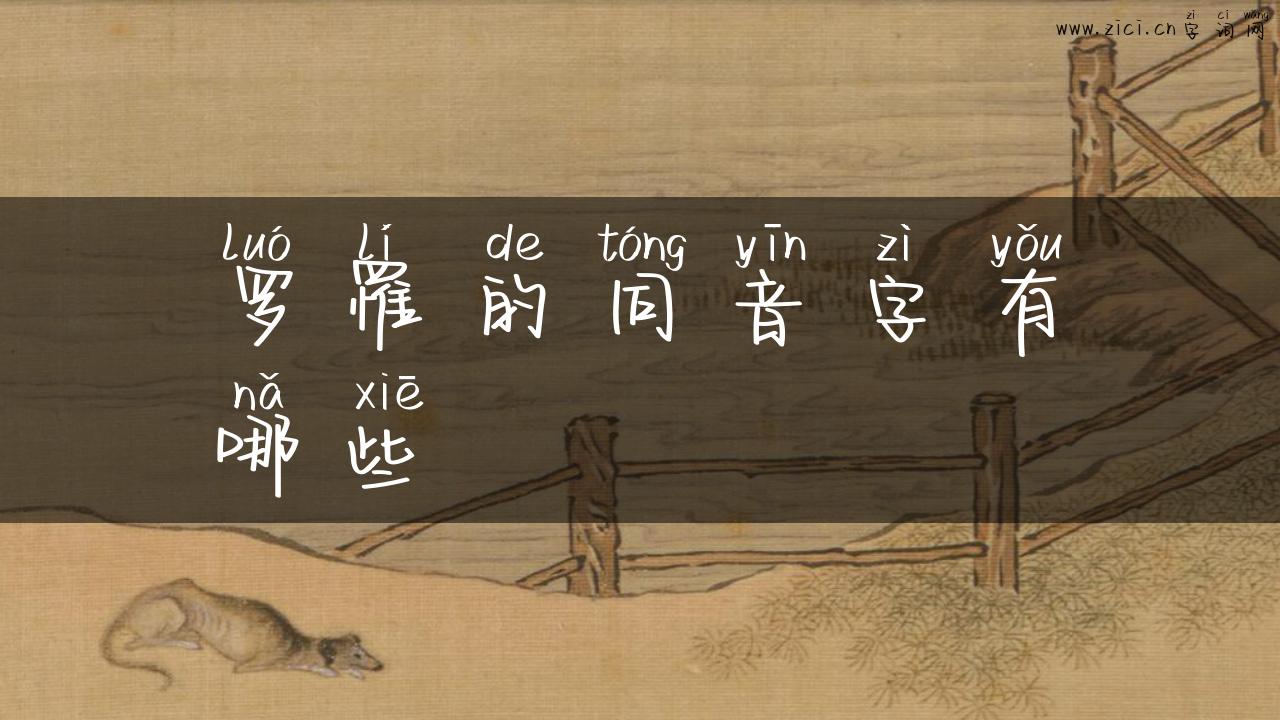 zì cí wǎng
www.zici.cn字词网
luó lí de tóng yīn zì yǒu
罗罹的同音字有
nǎ xiē
哪些